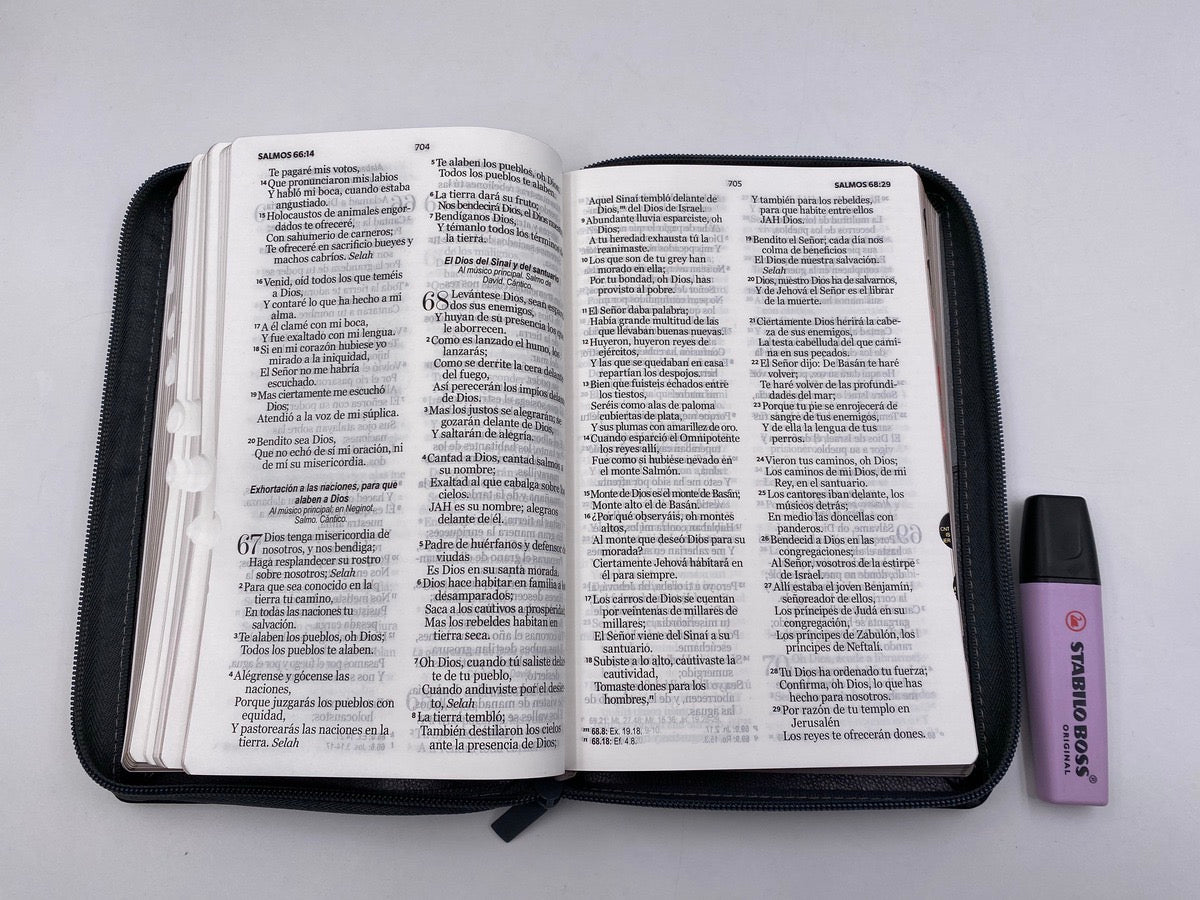 SALMOS 66:14
704
Te pagaré mis votos,
14 Que pronunciaron mis labios
Y habló mi boca, cuando estaba
angustiado.
15 Holocaustos de animales engor-
dados te ofreceré,
Con sahumerio de carneros;
Te ofreceré en sacrificio bueyes y
machos cabríos. Selah
16 Venid, oíd todos los que teméis
a Dios,
Y contaré lo que ha hecho a mi
alma.
17 A él clamé con mi boca,
Y fue exaltado con mi lengua.
18 Si en mi corazón hubiese yo
mirado a la iniquidad,
El Señor no me habría
escuchado.
19 Mas ciertamente me escuchó
Dios;
Atendió a la voz de mi súplica.
20 Bendito sea Dios,
Que no echó de sí mi oración, ni
de mí su misericordia.
Exhortación a las naciones, para que
alaben a Dios
Al músico principal; en Neginot.
Salmo. Cántico.
67 Dios tenga misericordia de
nosotros, y nos bendiga;
Haga resplandecer su rostro
sobre nosotros; Selah
2 Para que sea conocido en la
tierra tu camino,
En todas las naciones tu
salvación.
3 Te alaben los pueblos, oh Dios;
Todos los pueblos te alaben.
4 Alégrense y gócense las
naciones,
Porque juzgarás los pueblos con
equidad,
Y pastorearás las naciones en la
tierra. Selah
5 Te alaben los pueblos, oh Dios;
Todos los pueblos te alaben.
6 La tierra dará su fruto;
Nos bendecirá Dios, el Dios
7 Bendíganos Dios,
Y témanlo todos los términos
la tierra.
El Dios del Sinaí y del santuario
Al músico principal. Salmo de
David. Cántico.
68 Levántese Dios, sean
dos sus enemigos,
Y huyan de su presencia los que
le aborrecen.
2 Como es lanzado el humo, los
lanzarás;
Como se derrite la cera delante
del fuego,
Así perecerán los impíos delante
de Dios.
3 Mas los justos se alegrarán; se
gozarán delante de Dios,
Y saltarán de alegría.
4 Cantad a Dios, cantad salmos a
su nombre;
Exaltad al que cabalga sobre los
cielos.
JAH es su nombre; alegraos
delante de él.
5 Padre de huérfanos y defensor de
viudas
Es Dios en su santa morada.
6 Dios hace habitar en familia a los
desamparados;
Saca a los cautivos a prosperidad;
Mas los rebeldes habitan en
tierra seca.
7 Oh Dios, cuando tú saliste delan-
te de tu pueblo,
Cuando anduviste por el desier-
to, Selah
8 La tierra tembló;
También destilaron los cielos
ante la presencia de Dios;
705
SALMOS 68:29
Aquel Sinaí tembló delante de
Dios,m del Dios de Israel.
9 Abundante lluvia esparciste, oh
Dios;
A tu heredad exhausta tú la
reanimaste.
10 Los que son de tu grey han
morado en ella;
Por tu bondad, oh Dios, has
provisto al pobre.
11 El Señor daba palabra;
Había grande multitud de las
que llevaban buenas nuevas.
12 Huyeron, huyeron reyes de
ejércitos,
Y las que se quedaban en casa
repartían los despojos.
13 Bien que fuisteis echados entre
los tiestos,
Seréis como alas de paloma
cubiertas de plata,
Y sus plumas con amarillez de oro.
14 Cuando esparció el Omnipotente
los reyes allí,
Fue como si hubiese nevado en
el monte Salmón.
15 Monte de Dios es el monte de Basán;
Monte alto el de Basán.
16 ¿Por qué observáis, oh montes
altos,
Al monte que deseó Dios para su
morada?
Ciertamente Jehová habitará en
él para siempre.
17 Los carros de Dios se cuentan
por veintenas de millares de
millares;
El Señor viene del Sinaí a su
santuario.
18 Subiste a lo alto, cautivaste la
cautividad,
Tomaste dones para los
hombres,n
m 68.8: Ex. 19.18.
n 68.18: Ef. 4.8.
Y también para los rebeldes,
para que habite entre ellos
JAH Dios.
19 Bendito el Señor; cada día nos
colma de beneficios
El Dios de nuestra salvación.
Selah
20 Dios, nuestro Dios ha de salvarnos,
Y de Jehová el Señor es el librar
de la muerte.
21 Ciertamente Dios herirá la cabe-
za de sus enemigos,
La testa cabelluda del que cami-
na en sus pecados.
22 El Señor dijo: De Basán te haré
volver;
Te haré volver de las profundi-
dades del mar;
23 Porque tu pie se enrojecerá de
sangre de tus enemigos,
Y de ella la lengua de tus
perros.
24 Vieron tus caminos, oh Dios;
Los caminos de mi Dios, de mi
Rey, en el santuario.
25 Los cantores iban delante, los
músicos detrás;
En medio las doncellas con
panderos.
26 Bendecid a Dios en las
congregaciones;
Al Señor, vosotros de la estirpe
de Israel.
27 Allí estaba el joven Benjamín,
señoreador de ellos,
Los príncipes de Judá en su
congregación,
Los príncipes de Zabulón, los
príncipes de Neftalí.
28 Tu Dios ha ordenado tu fuerza;
Confirma, oh Dios, lo que has
hecho para nosotros.
29 Por razón de tu templo en
Jerusalén
Los reyes te ofrecerán dones.
STABILO BOSS®
ORIGINAL